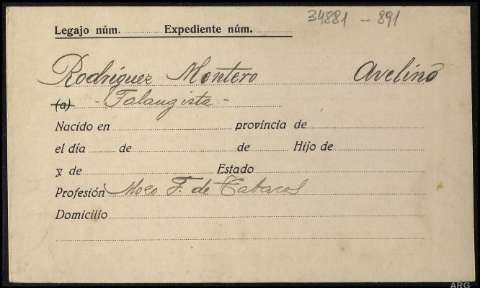 34881 - 891
Legajo núm. Expediente núm.
Rodriguez Montero Avelino
(a) - Falangista -
Nacido en provincia de
el día de de Hijo de
y de Estado
Profesión Mozo F. de Tabacos
Domicilio
ARG